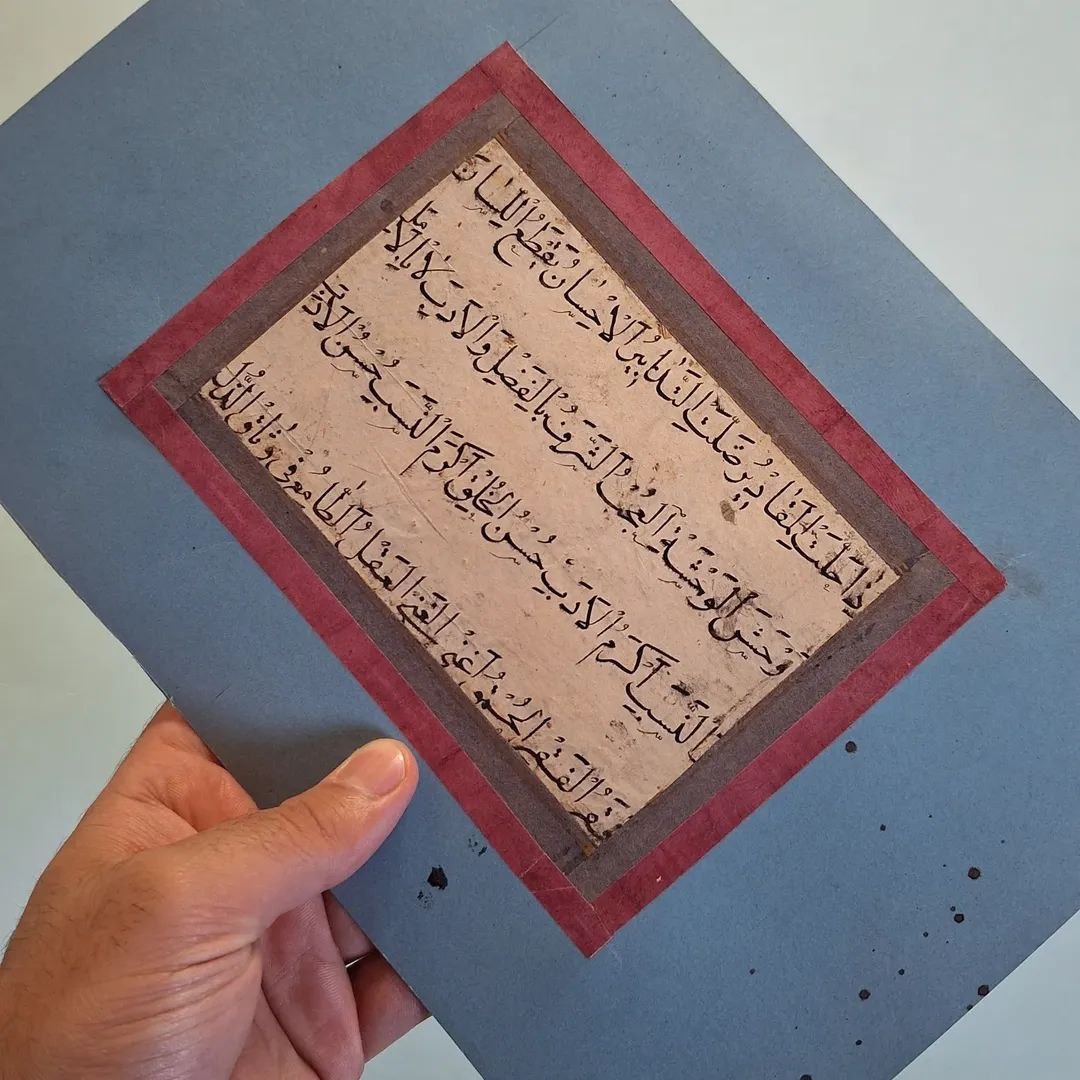 اِذَا حَلَّتِ الْمَقَادِيرُ ضَلَّتِ التَّدَابِيرُ اَلْاِحْسَانُ يَقْطَعُ اللِّسَانَ
وْحَشُ الْوَحْشَةِ الْعُجْبُ اَلشَّرَفُ بِالْفَضْلِ وَالْاَدَبِ لَا بِالْاَصْلِ
النَّسَبِ اَكْرَمُ الْاَدَبِ حُسْنُ الْخُلْقِ اَكْرَمُ النَّسَبِ حُسْنُ الْاَدَبِ
فْقَرُ الْفَقْرِ الْحُمْقُ اَغْنَى الْغِنَى الْعَقْلُ اَلطَّامِعُ فِى وِثَاقِ الذُّلِّ